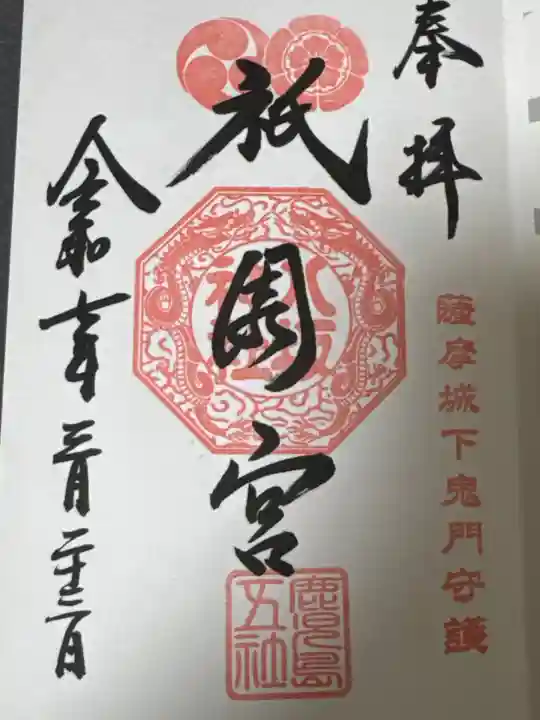 奉拝
薩摩城下鬼門守護
祇園宮
八坂神社
鹿児島五社
令和七年三月二十三日